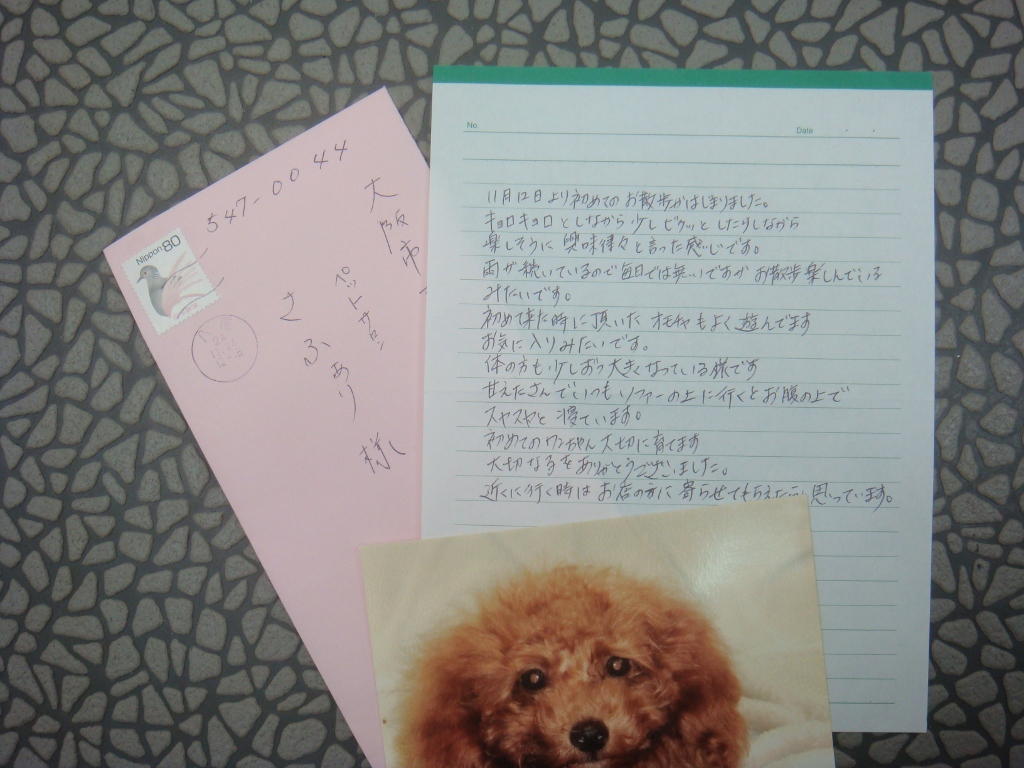 547-0044
大阪市
ペットサロン
さふあり
様
Nippon 80
No.
Date
11月12日より初めてのお散歩がはじまりました。
キョロキョロとしながら少しビクッとしたりしながら
楽しそうに興味津々と言った感じです。
雨が続いているので毎日では無いですがお散歩楽しんでいる
みたいです。
初めて来た時に頂いたオモチャもよく遊んでます
お気に入りみたいです。
体の方も少しおつ大きくなっている様です
甘えたさんでいつもソファーの上に行くとお腹の上で
スヤスヤと寝ています。
初めてのワンちゃん大切に育てます
大切な子をありがとうございました。
近くに行く時はお店の方に寄らせてもらえたら思っています。